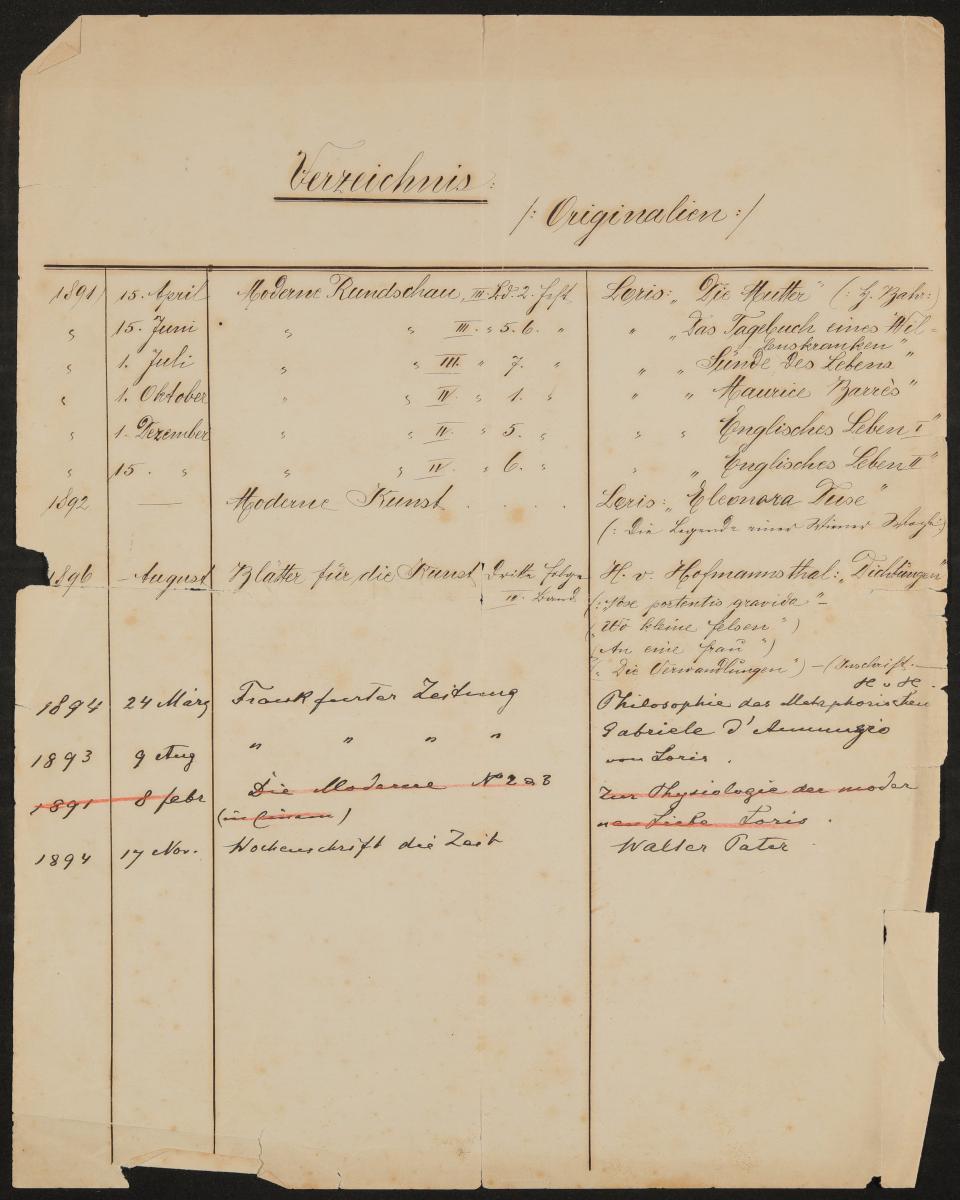 Verzeichnis:
/: Originalien :/
1891 15. April Moderne Rundschau, III. Bd. 2. Heft Loris: „Die Mutter" (: H. Bahr:)
„ 15. Juni „ „ III. „ 5. 6. „ „ „Das Tagebuch eines Wil-
lenskranken"
„ 1. Juli „ „ III. „ 7. „ „ „ Sünde des Lebens"
„ 1. Oktober „ „ IV. „ 1. „ „ „ Maurice Barrès"
„ 1. Dezember „ „ IV. „ 5. „ „ „ Englisches Leben I"
„ 15. „ „ „ IV. „ 6. „ „ „ Englisches Leben II"
1892 — Moderne Kunst . . . . Loris: „Eleonora Duse"
(: Die Legende einer Wiener Woche:)
1896 – August Blätter für die Kunst, Dritte Folge H. v. Hofmannsthal: „Dichtungen"
IV. Band (: portentis gravida" –
(„Wo kleine Felsen")
(An eine Frau")
(„Die Verwandlungen") – (Unterschrift.—
H v H.
1894 24 März Frankfurter Zeitung Philosophie des Metaphorischen
1893 9 Aug „ „ „ „ Gabriele D'Annunzio
von Loris.
1891 8 febr Die Moderne No 2 & 3 Zur Physiologie der moder
(in Einem) nen Liebe Loris.
1894 17 Nov. Wochenschrift die Zeit Walter Pater